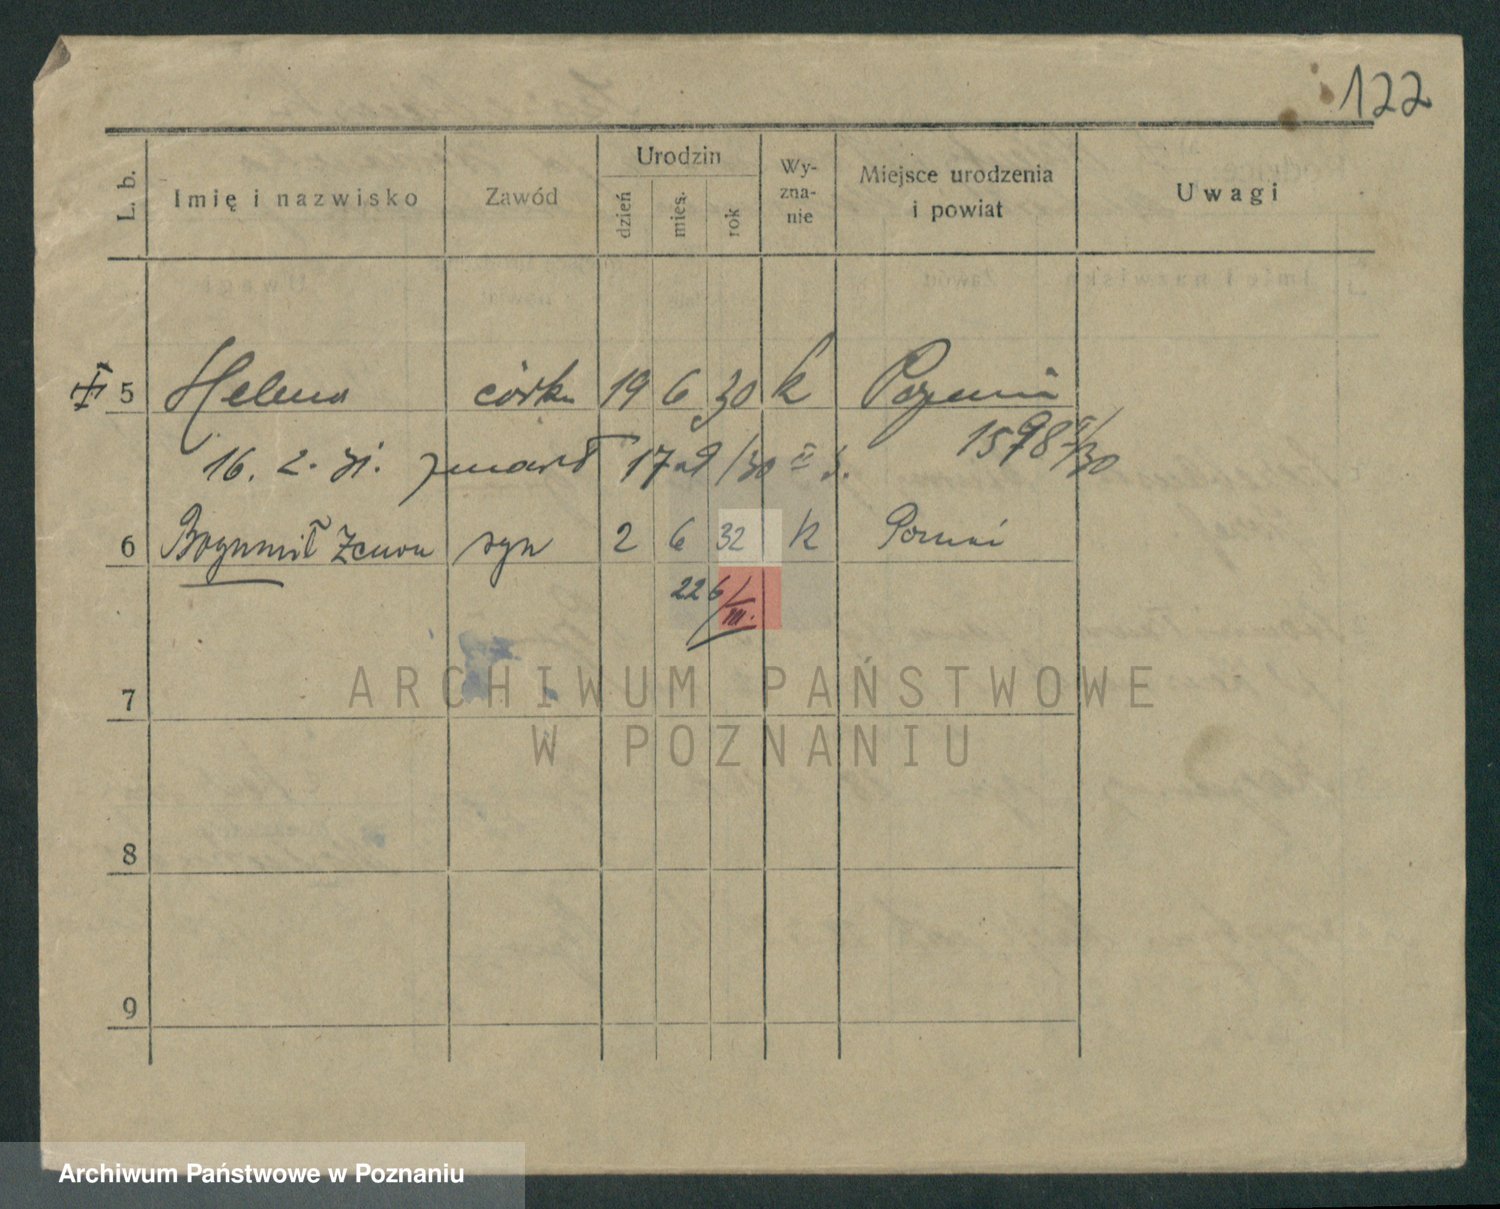 122
L. b. Imię i nazwisko Zawód Urodzin dzień mies. rok Wy-zna-nie Miejsce urodzenia i powiat Uwagi
5 Helena córka 19 6 30 k Poznań
16. 2. 31. zmarł 17 1598
6 Bogumił Zenon syn 2 6 32 k Poznań
226/III.
7
ARCHIWUM PAŃSTWOWE
W POZNANIU
8
9
Archiwum Państwowe w Poznaniu